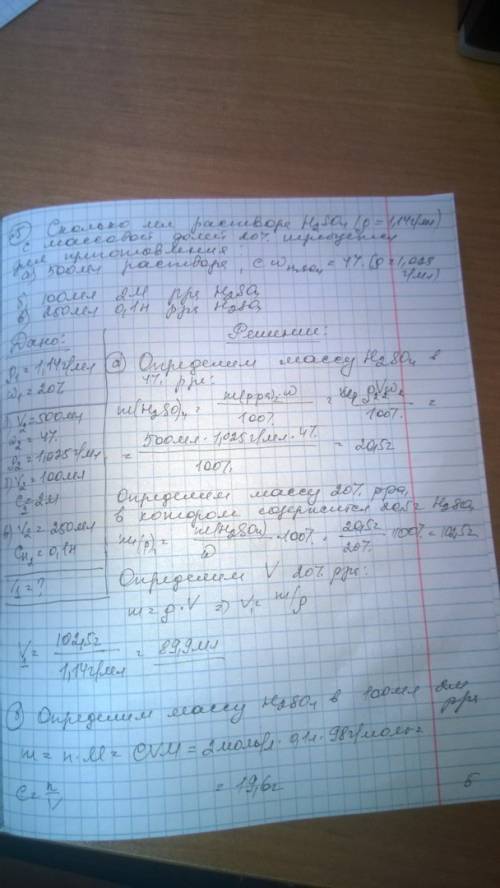 5) Сколько мл раствора H₂SO₄ (ρ = 1,14 г/мл)
с массовой долей 20% требуется
для приготовления:
а) 500мл раствора, с ω = 4% (ρ = 1,025 г/мл)
б) 100мл 2М р-ра H₂SO₄
в) 250мл 0,1н р-ра H₂SO₄
Дано:
ρ₁ = 1,14г/мл
ω₁ = 20%
V₂ = 500мл
ω₂ = 4%
ρ₂ = 1,025г/мл
V₂ = 100мл
C₂ = 2М
в) V₂ = 250мл
Cн₂ = 0,1н
V₁ = ?
Решение:
а) Определим массу H₂SO₄ в
4% р-ре:
m(H₂SO₄) = m(р-ра)·ω / 100% = ρ₂V₂ω₂ / 100% =
= 500мл · 1,025г/мл · 4% / 100% = 20,5г
Определим массу 20% р-ра,
в котором содержится 20,5г H₂SO₄
m(р) = m(H₂SO₄) / ω · 100% = 20,5г / 20% · 100% = 102,5г
Определим V 20% р-ра:
m = ρ·V ⇒ V = m/ρ
V₁ = 102,5г / 1,14г/мл = 89,9мл
б) Определим массу H₂SO₄ в 100мл 2М р-ра
m = n·M = CVM = 2моль/л · 0,1л · 98г/моль =
C = n/V
= 19,6г
б